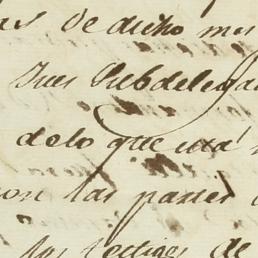 de dicho mes
Jues Subdelega
delo que
con las partes
los testigos de